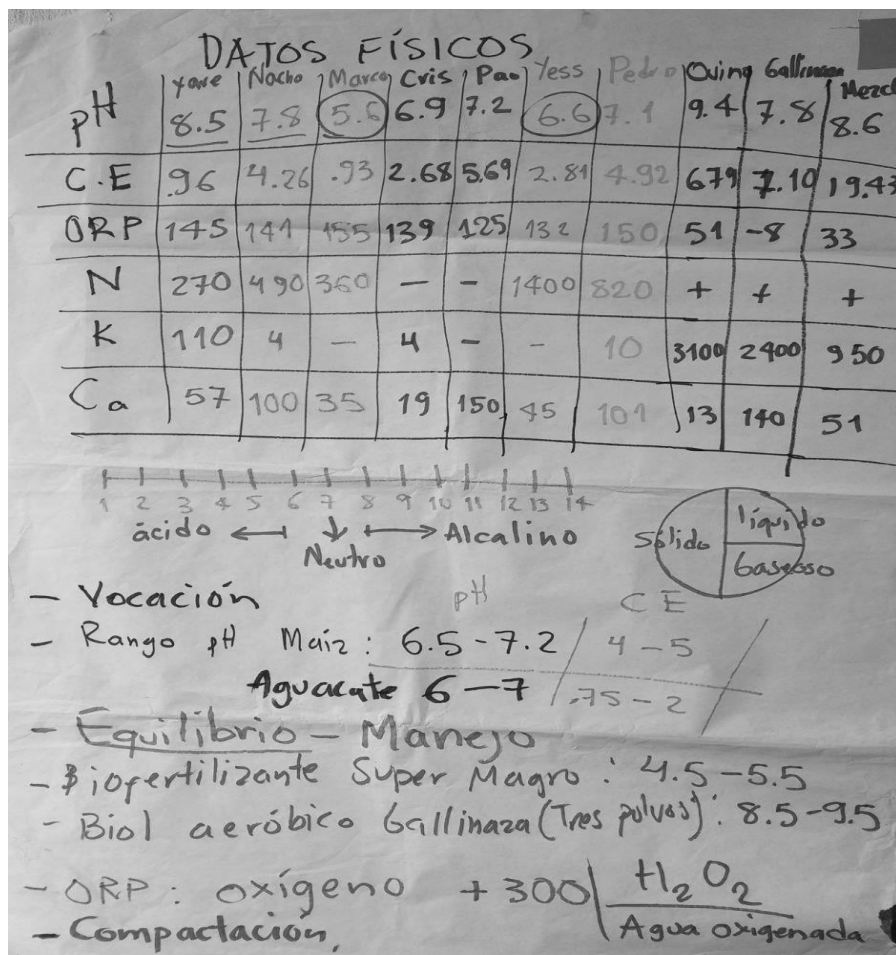 DATOS FÍSICOS
Yave Nacho Marco Cris Pao Yess Pedro Ovino Gallinaza Mezcl
pH 8.5 7.8 5.6 6.9 7.2 6.6 7.1 9.4 7.8 8.6
C.E .96 4.26 .93 2.68 5.69 2.81 4.92 679 7.10 19.43
ORP 145 141 155 139 125 132 150 51 -8 33
N 270 490 360 — - 1400 820 + + +
K 110 4 — 4 - - 10 3100 2400 950
Ca 57 100 35 19 150 45 101 13 140 51
1 2 3 4 5 6 7 8 9 10 11 12 13 14
ácido ← ↓ → Alcalino
Neutro
Sólido líquido
Gaseoso
- Vocación pH CE
- Rango pH Maiz: 6.5-7.2 / 4-5
Aguacate 6-7 / .75-2
- Equilibrio - Manejo
- Biofertilizante Super Magro: 4.5-5.5
- Biol aeróbico Gallinaza (Tres polvos): 8.5-9.5
- ORP: oxígeno +300 H₂O₂
Agua oxigenada
- Compactación,